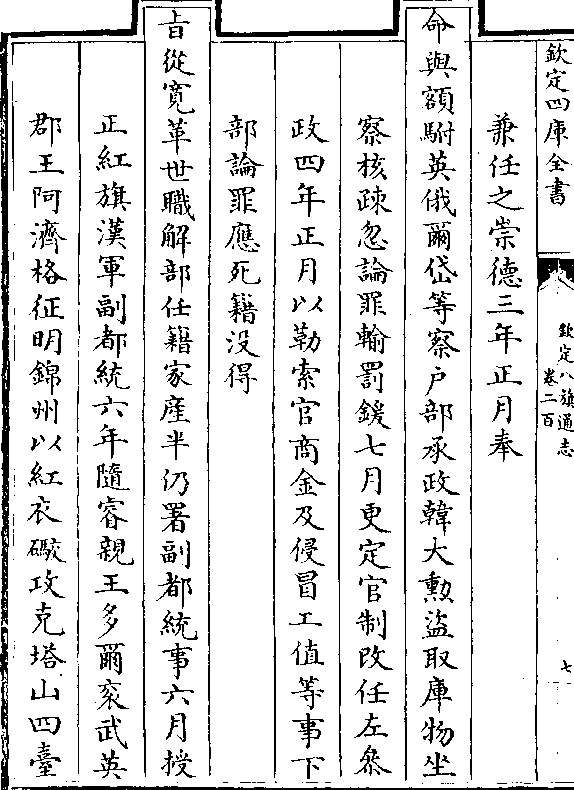 欽定四庫全書
欽定八旗通志
卷二百
七
兼任之崇德三年正月奉
命與額駙英俄爾岱等察户部承政韓大勲盜取庫物坐
察核疎忽論罪輸罰鍰七月更定官制改任左叅
政四年正月以勒索官商金及侵冒工值等事下
部論罪應死籍没得
旨從寛革世職解部任籍家産半仍署副都統事六月授
正紅旗漢軍副都統六年隨睿親王多爾衮武英
郡王阿濟格征明錦州以紅衣礮攻克塔山四臺